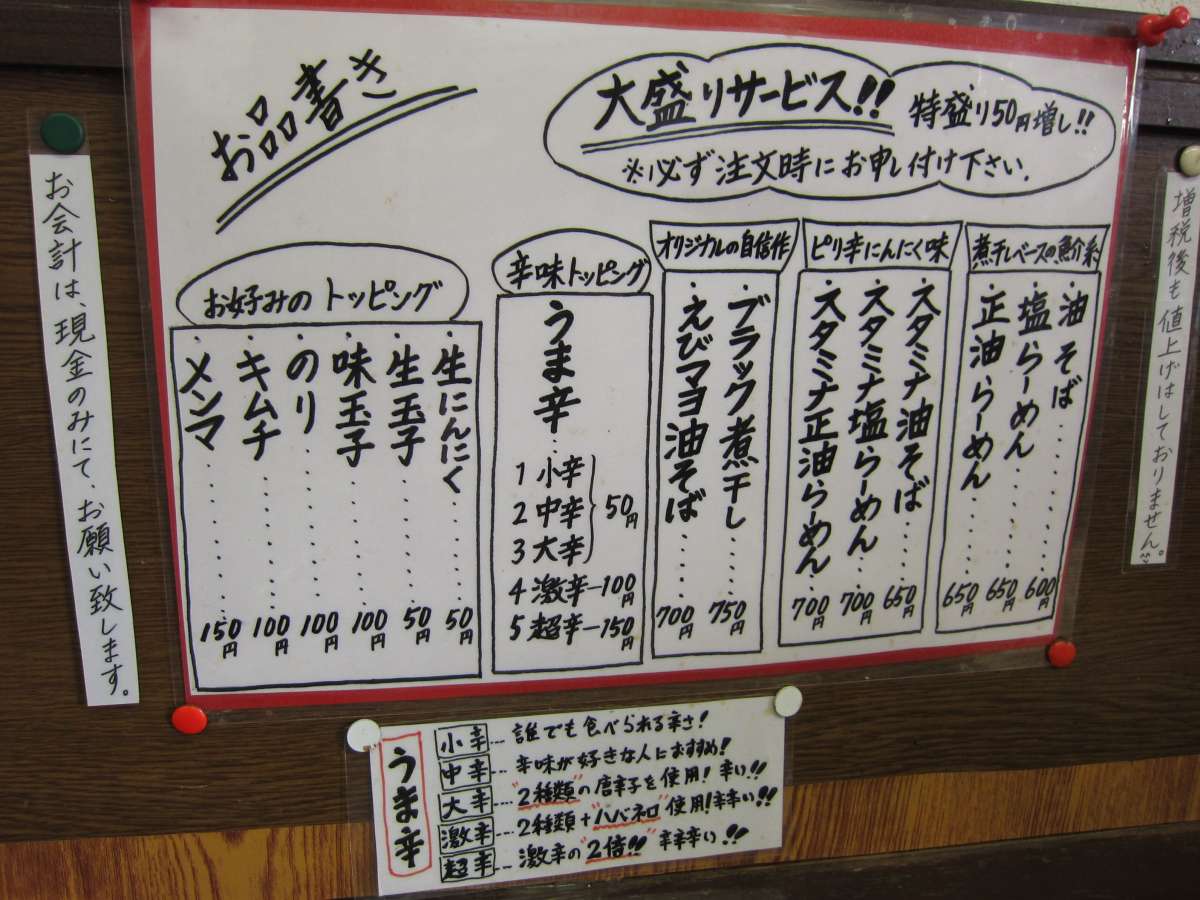 お品書き
大盛りサービス!! 特盛り50円増し!!
※必ず注文時にお申し付け下さい.
煮干しベースの魚介系
・油そば……600円
・塩らーめん……650円
・正油らーめん……650円
ピリ辛にんにく味
・スタミナ油そば……650円
・スタミナ塩らーめん……700円
・スタミナ正油らーめん……700円
オリジナルの自信作
・ブラック煮干し……750円
・えびマヨ油そば……700円
辛味トッピング
うま辛
1 小辛
2 中辛
3 大辛
50円
4 激辛—100円
5 超辛—150円
お好みのトッピング
・生にんにく……50円
・生玉子……50円
・味玉子……100円
・のり……100円
・キムチ……100円
・メンマ……150円
増税後も値上げはしておりません。
お会計は、現金のみにて、お願い致します。
うま辛
小辛…誰でも食べられる辛さ!
中辛…辛味が好きな人におすすめ!
大辛…"2種類"の唐辛子を使用!辛い!!
激辛…2種類+"ハバネロ"使用!辛辛い!!
超辛…激辛の"2倍!!"辛辛辛い!!